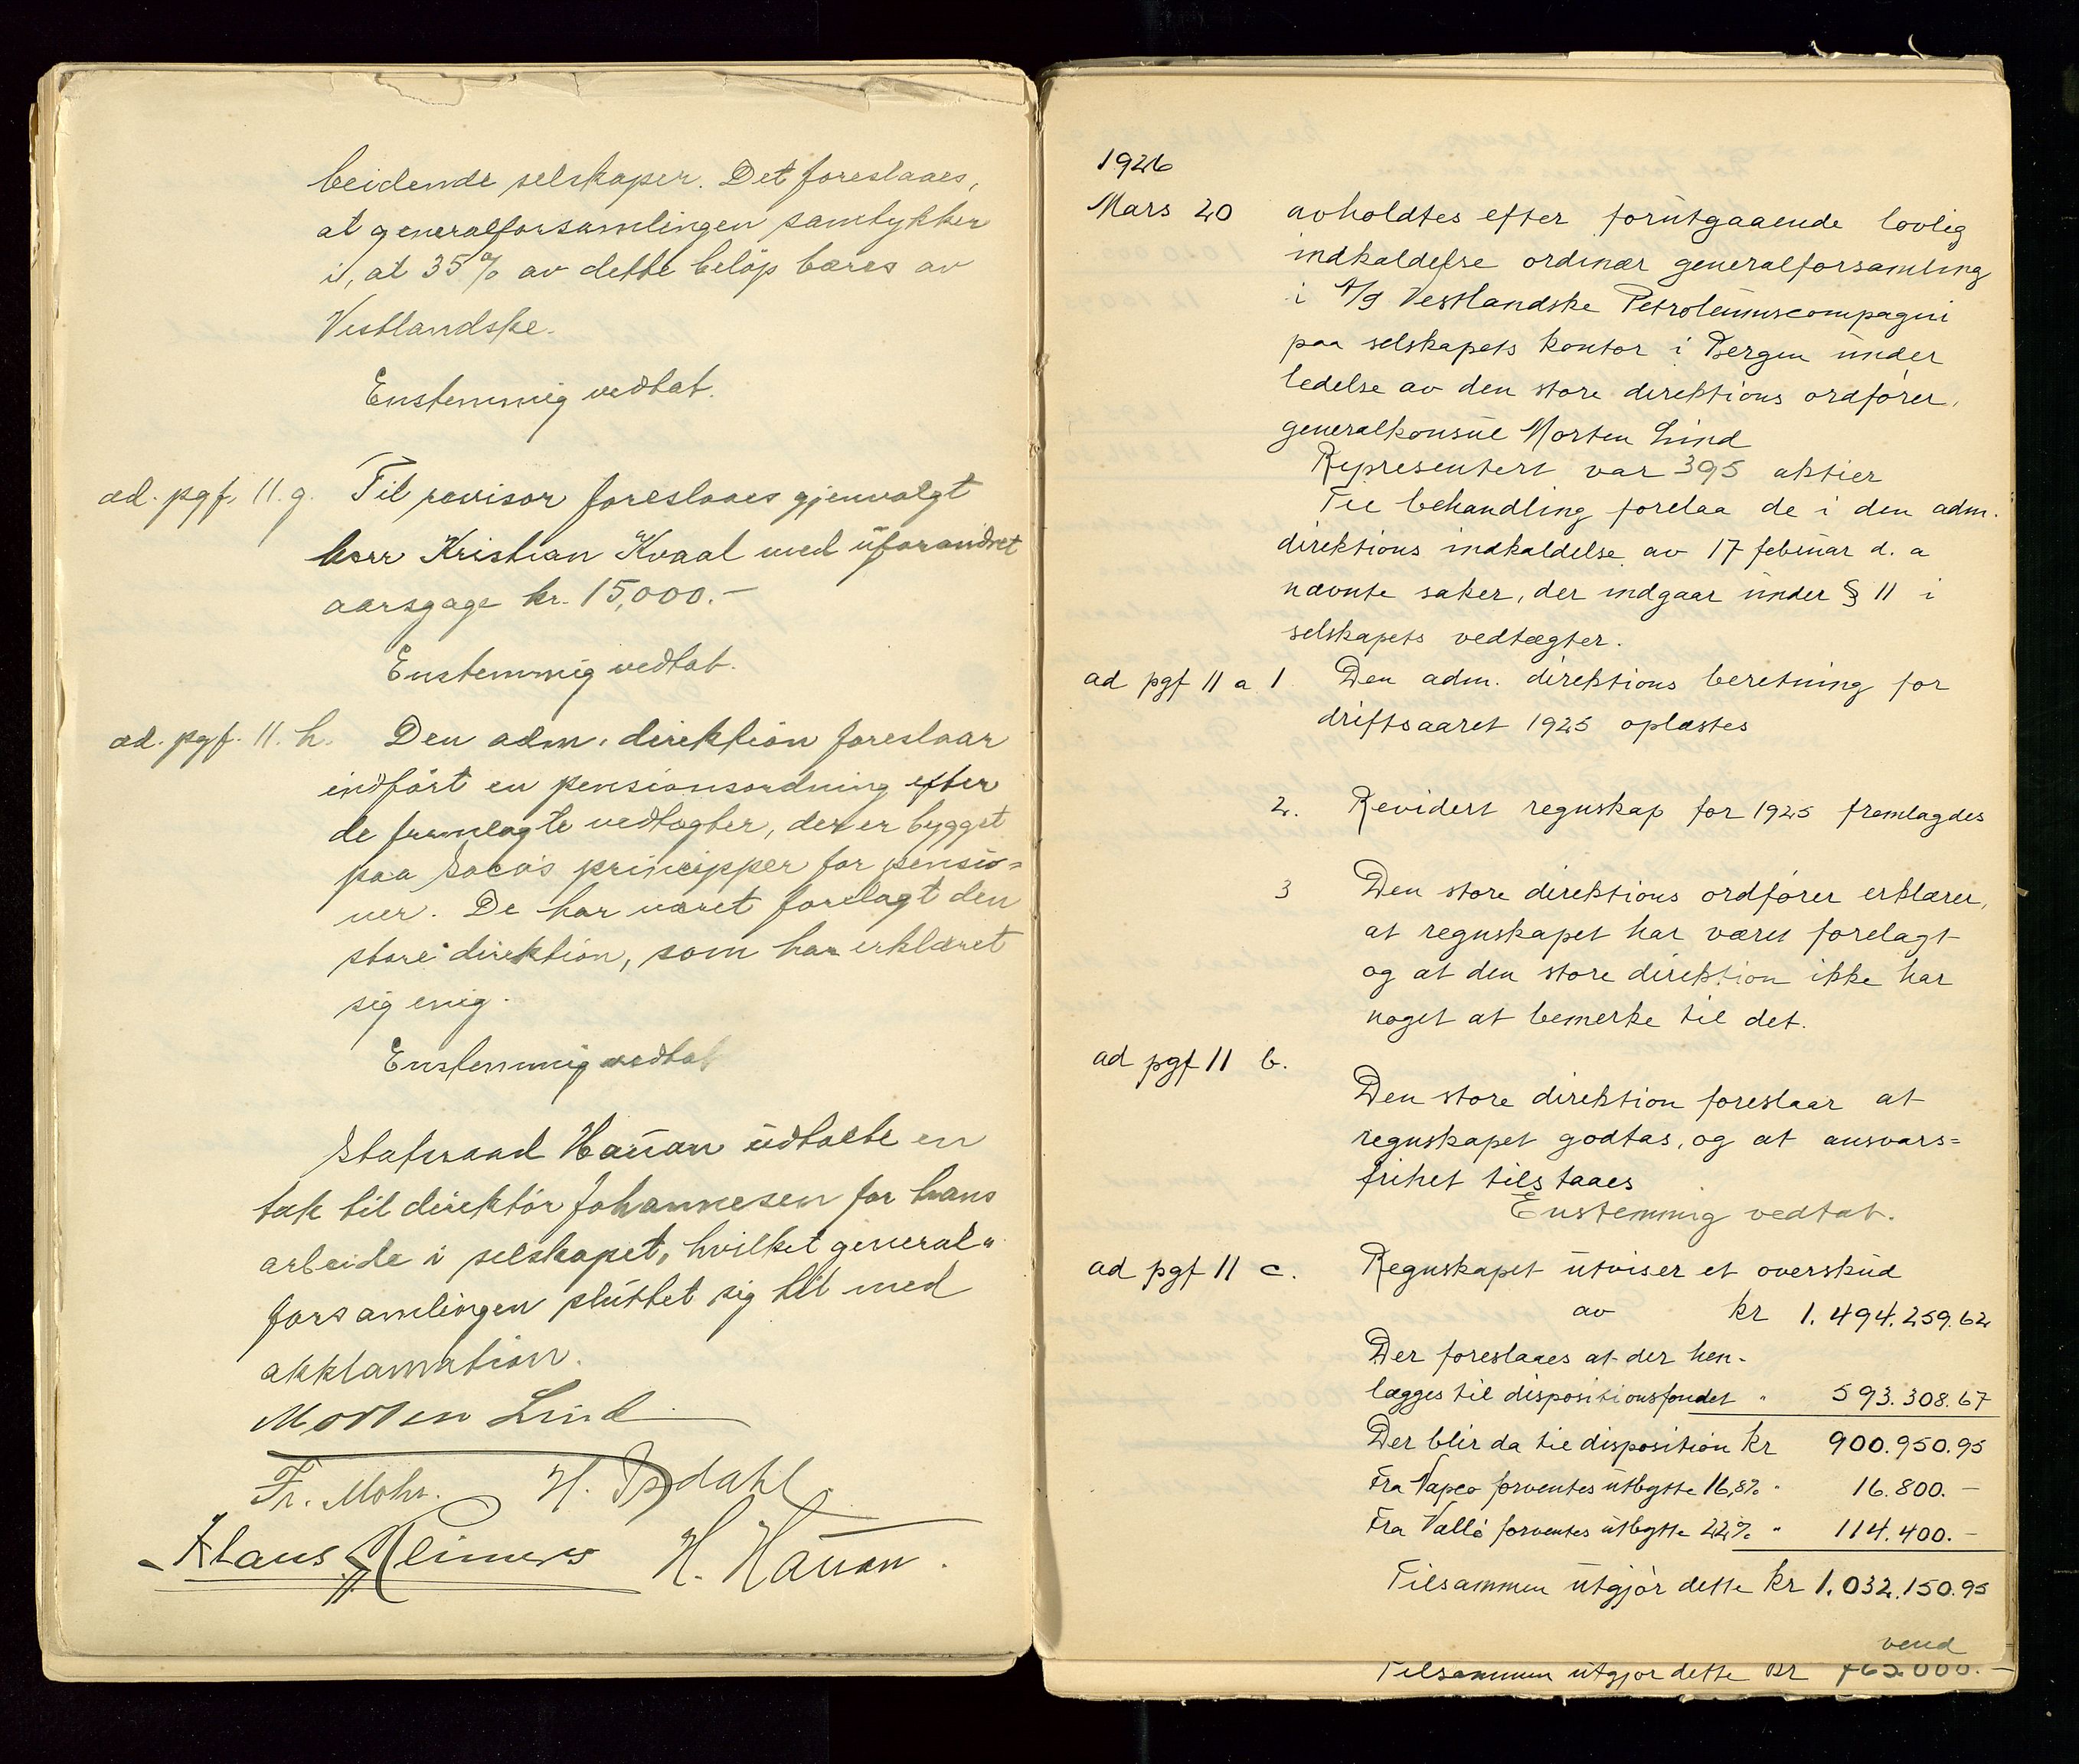 beidende selskaper. Det foreslaaes,
at generalforsamlingen samtykker
i, at 35% av dette beløp bæres av
Vestlandske.
Enstemmig vedtat.
ad. pgf. 11. g. Til revisor foreslaaes gjenvalgt
herr Kristian Kvaal med uforandret
aarsgage kr. 15,000.-
Enstemmig vedtat.
ad. pgf. 11. h. Den adm. direktion foreslaar
indført en pensionsordning efter
de fremlagte vedtægter, der er bygget
paa Soco's principper for pensio=
ner. De har været forelagt den
store direktion, som har erklæret
sig enig.
Enstemmig vedtat
Statsraad Hauan uttalte en
tak til direktør Johannesen for hans
arbeide i selskapet, hvilket general=
forsamlingen sluttet sig til med
akklamation.
Morten Lind
Fr. Mohr. H. Isdahl
Klaus Reimers H. Hauan.
1926
Mars 20 avholdtes efter forutgaaende lovlig
indkaldelse ordinær generalforsamling
i A/S Vestlandske Petroleumscompagni
paa selskapets kontor i Bergen under
ledelse av den store direktions ordfører,
generalkonsul Morten Lind
Representert var 395 aktier
Til behandling forelaa de i den adm.
direktions indkaldelse av 17 februar d. a
nævnte saker, der indgaar under § 11 i
selskapets vedtægter.
ad pgf 11 a 1 Den adm. direktions beretning for
driftsaaret 1925 oplæstes
2. Revidert regnskap for 1925 fremlagdes
3 Den store direktions ordfører erklærer,
at regnskapet har været forelagt
og at den store direktion ikke har
noget at bemerke til det.
ad pgf 11 b.
Den store direktion foreslaar at
regnskapet godtas, og at ansvars=
frihet tilstaaes
Enstemmig vedtat.
ad pgf 11 c. Regnskapet utviser et overskud
av kr 1.494.259.62
Der foreslaaes at der hen-
lægges til dispositionsfondet " 593.308.67
Der blir da til disposition kr 900.950.95
Fra Napco forventes utbytte 16,8% " 16.800.-
Fra Vallø forventes utbytte 22% " 114.400.-
Tilsammen utgjør dette kr 1.032.150.95
vend
Tilsammen utgjør dette kr 762.000.-